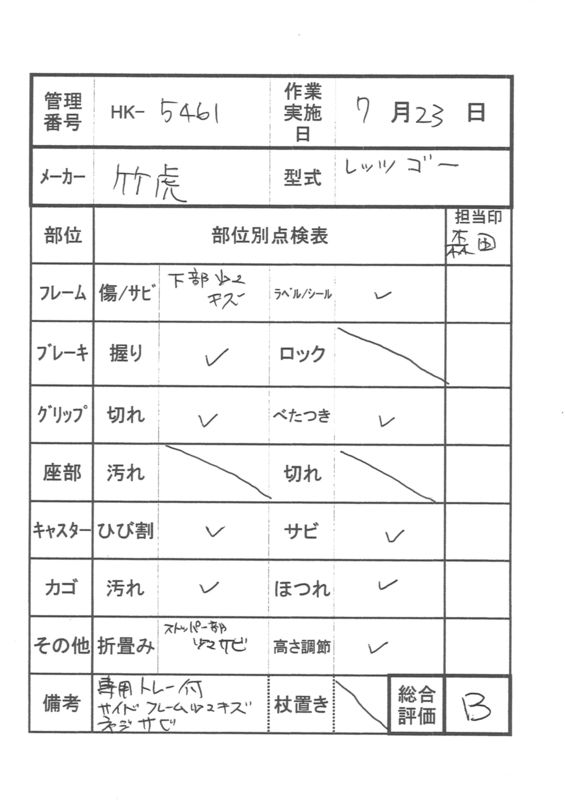 管理番号 HK- 5461 作業実施日 7月23日
メーカー 竹虎 型式 レッツゴー
部位 部位別点検表 担当印 森田
フレーム 傷/サビ 下部 小2 キズ ラベル/シール ✓
ブレーキ 握り ✓ ロック
グリップ 切れ ✓ べたつき ✓
座部 汚れ 切れ
キャスター ひび割 ✓ サビ ✓
カゴ 汚れ ✓ ほつれ ✓
その他 折畳み ストッパー部 サビ 高さ調節 ✓
備考 専用トレー付 杖置き 総合評価 B
サイドフレーム キズ
ネジサビ